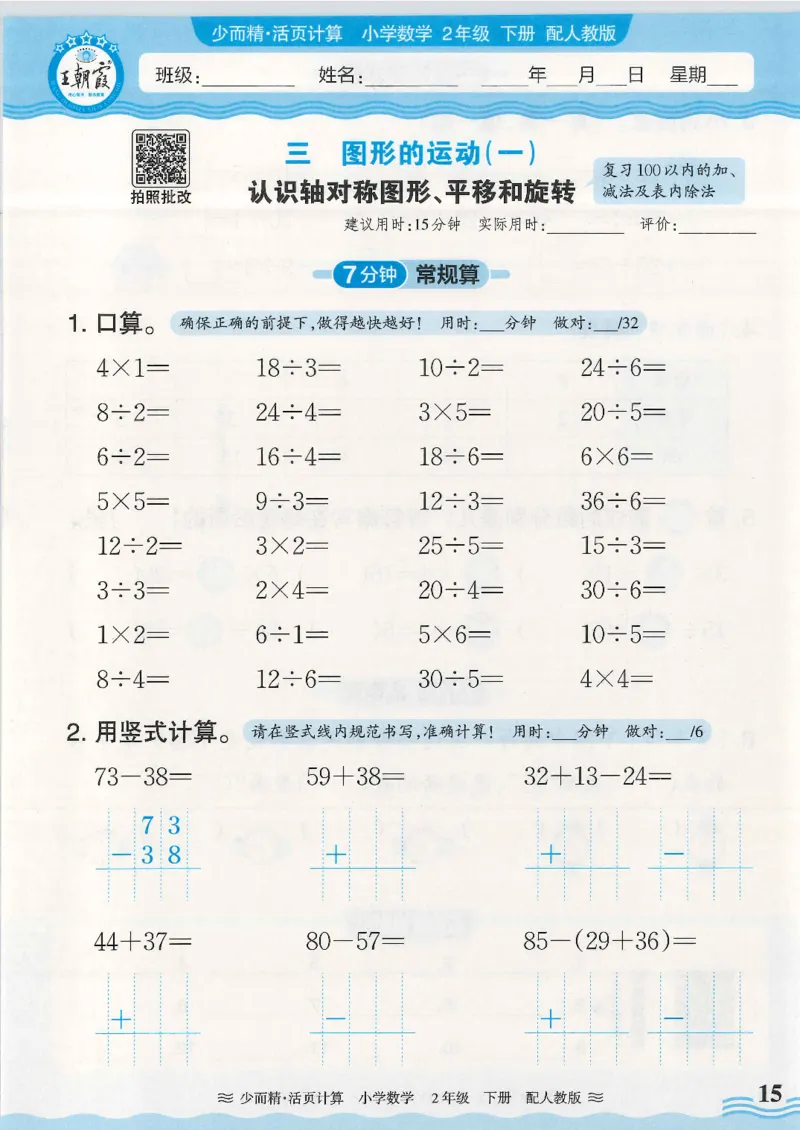 少而精·活页计算 小学数学 2年级 下册 配人教版
王朝霞
班级:________ 姓名:________ ____年___月___日 星期___
拍照批改
三 图形的运动(一)
认识轴对称图形、平移和旋转
复习100以内的加、
减法及表内除法
建议用时:15分钟 实际用时:________ 评价:________
7分钟 常规算
1. 口算。 确保正确的前提下,做得越快越好! 用时:___分钟 做对:___/32
4×1= 18÷3= 10÷2= 24÷6=
8÷2= 24÷4= 3×5= 20÷5=
6÷2= 16÷4= 18÷6= 6×6=
5×5= 9÷3= 12÷3= 36÷6=
12÷2= 3×2= 25÷5= 15÷3=
3÷3= 2×4= 20÷4= 30÷6=
1×2= 6÷1= 5×6= 10÷5=
8÷4= 12÷6= 30÷5= 4×4=
2. 用竖式计算。 请在竖式线内规范书写,准确计算! 用时:___分钟 做对:___/6
73-38= 59+38= 32+13-24=
7 3
-3 8 + + -
44+37= 80-57= 85-(29+36)=
+ - + -
少而精·活页计算 小学数学 2年级 下册 配人教版
15